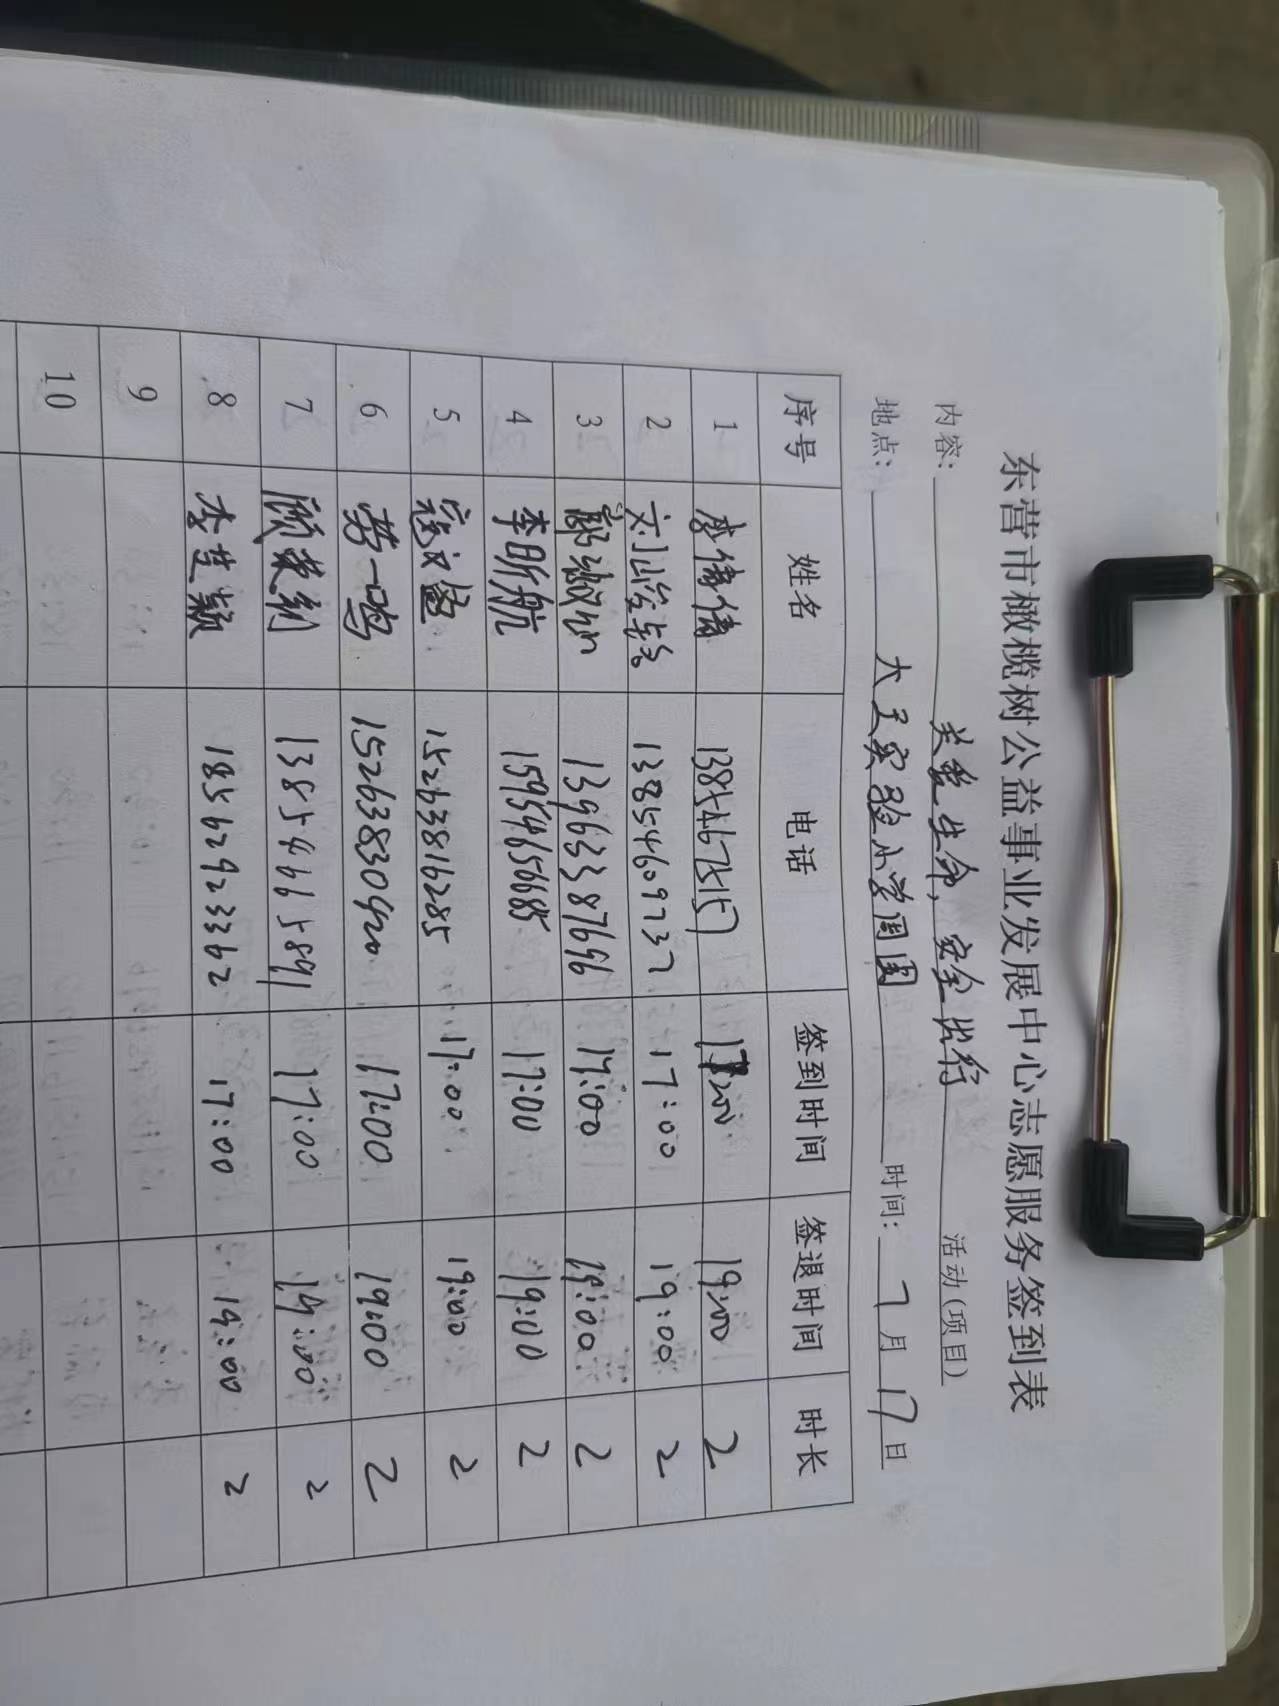 东营市橄榄树公益事业发展中心志愿服务签到表
内容: 关爱生命,安全出行 活动(项目)
地点: 大王实验小学周围 时间: 7月17日
序号 姓名 电话 签到时间 签退时间 时长
1 李倩倩 13854675157 17:00 19:00 2
2 13854609737 17:00 19:00 2
3 13963387696 17:00 19:00 2
4 李昕航 15954656685 17:00 19:00 2
5 寇文盈 15263816285 17:00 19:00 2
6 劳一鸣 15263830920 17:00 19:00 2
7 顾荣利 13854665891 17:00 19:00 2
8 李芝颖 18562923362 17:00 19:00 2
9
10